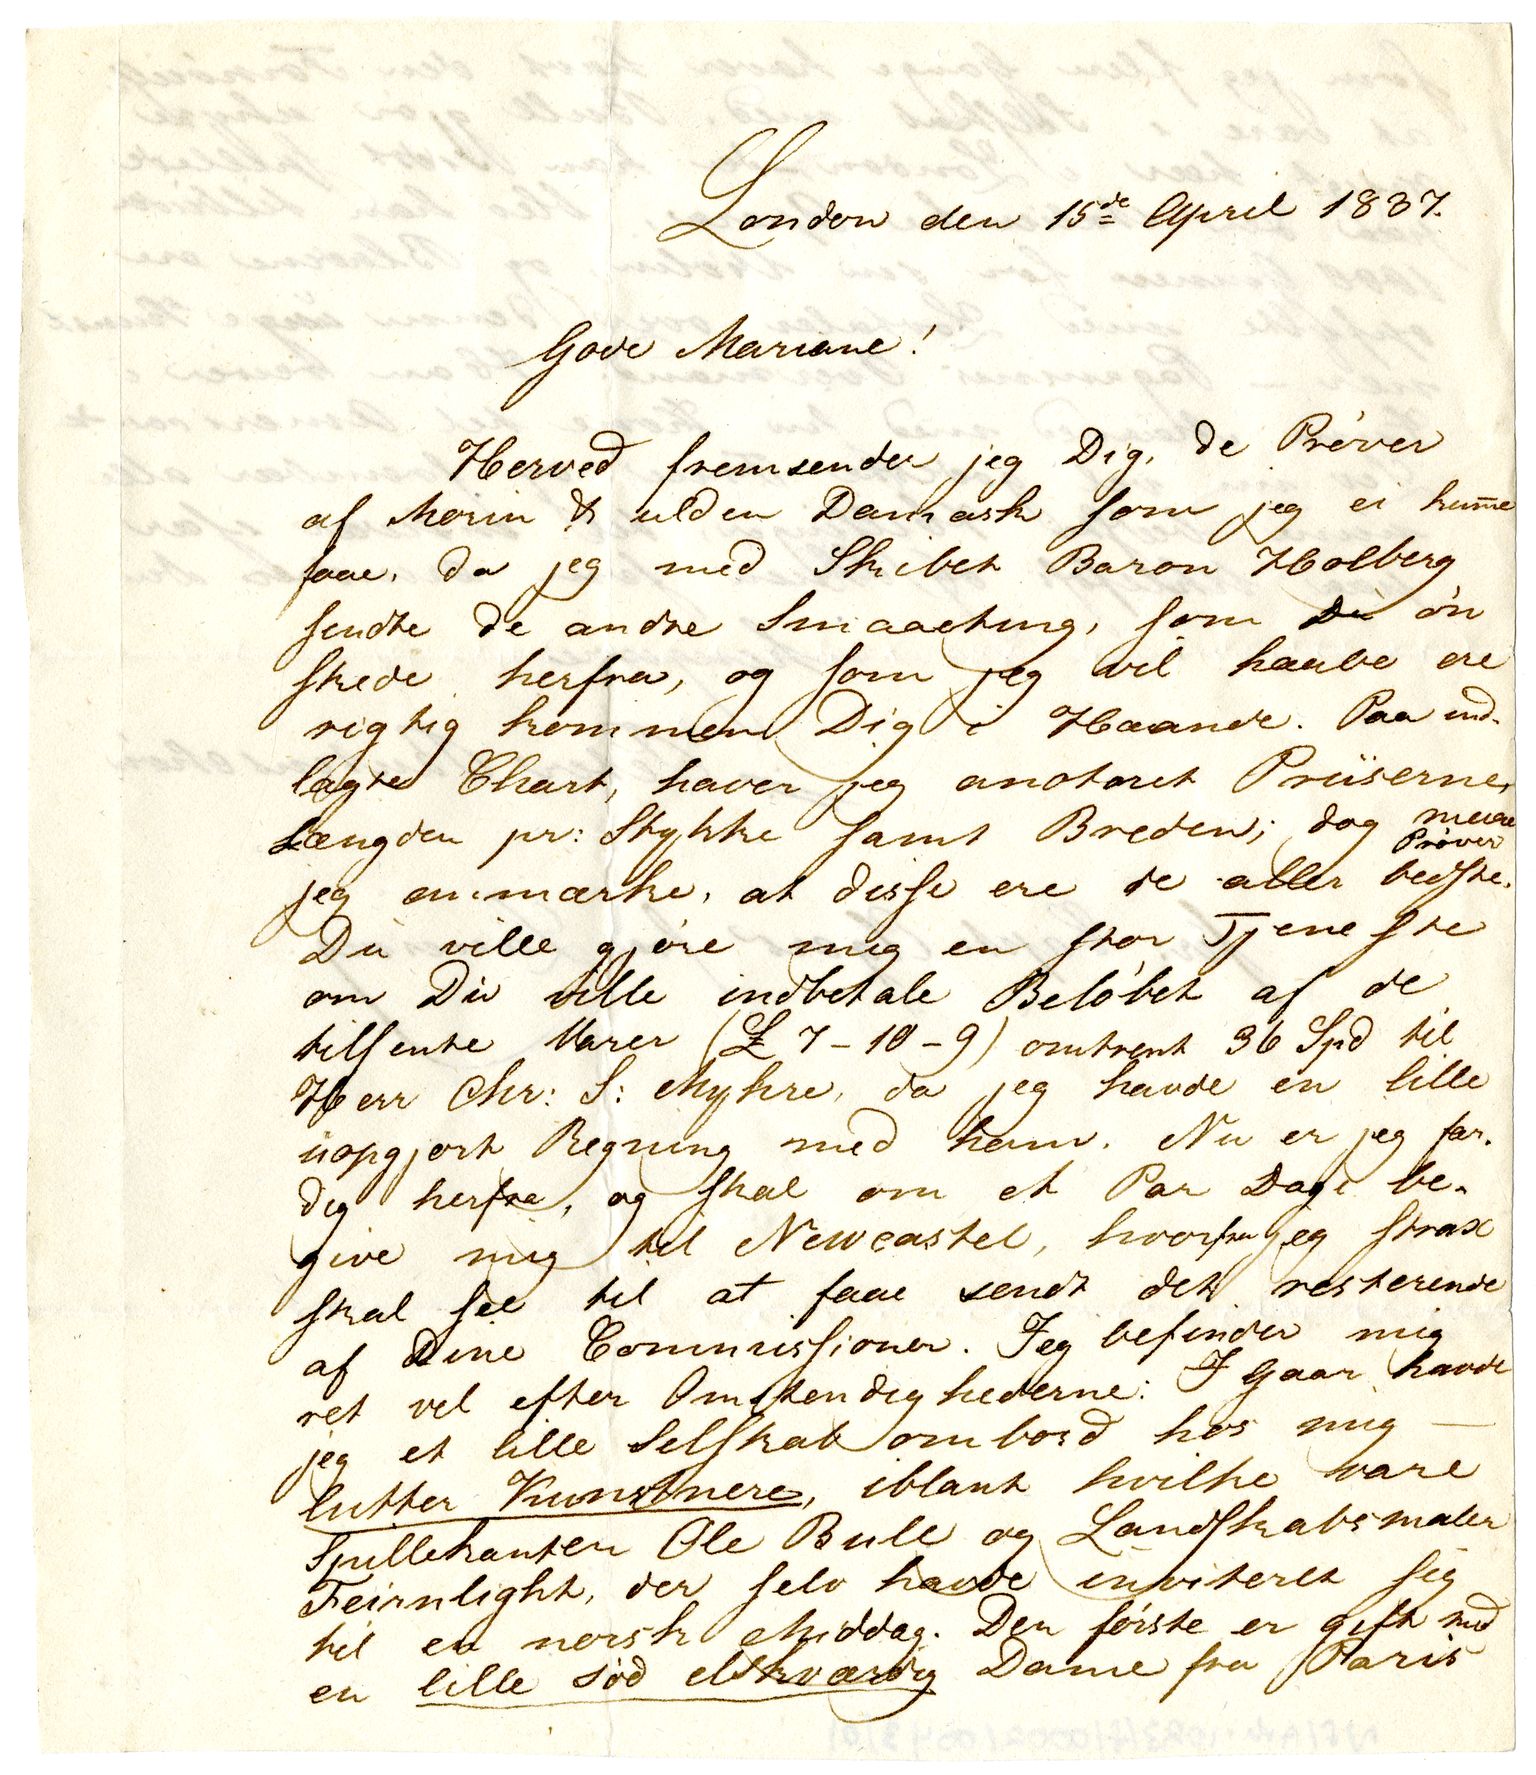 London den 15de April 1837.
Gode Mariane!
Herved fremsender jeg Dig, de Prøver
af Morin & ulden Damask som jeg ei kun̄e
faae, da jeg med Skibet Baron Holberg
sendte de andre Smaaeting, som Du øn
skede herfra, og som jeg vil haabe ere
rigtig kommen Dig i Hænde. Paa ind-
lagte Chart, haver jeg anoteret Priiserne,
Længden pr: Stykke samt Breden; dog maae
jeg anmærke, at disse Prøver ere de aller bedste.
Du ville gjøre mig en stor Tjeneste
om Du ville indbetale Beløbet af de
tilsente Varer (£ 7-10-9) omtrent 36 Spd til
Herr Chr: S: Myhre, da jeg havde en lille
uopgjort Regning med ham. Nu er jeg fær-
dig herfra, og skal om et Par Dage be-
give mig til Newcastel, hvorfra jeg strax
skal see til at faae sendt det resterende
af Dine Commissioner. Jeg befinder mig
ret vel efter Omstendighederne: I Gaar havde
jeg et lille Selskab ombord hos mig —
lutter Kunstnere, iblant hvilke vare
Spillekanten Ole Bull og Landskabsmaler
Feirnlight, der selv havde inviteret sig
til en norsk Middag. Den første er gift med
en lille sød elskværdig Dame fra Paris